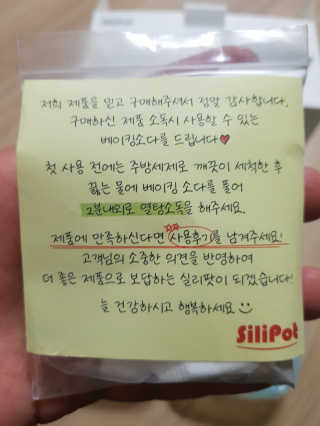 저희 제품을 믿고 구매해주셔서 정말 감사합니다.
구매하신 제품 소독시 사용할 수 있는
베이킹소다를 드립니다♥
첫 사용 전에는 주방세제로 깨끗이 세척한 후
끓는 물에 베이킹 소다를 풀어
2분내외로 열탕소독을 해주세요.
제품에 만족하신다면 사용후기를 남겨주세요!
고객님의 소중한 의견을 반영하여
더 좋은 제품으로 보답하는 실리팟이 되겠습니다!
늘 건강하시고 행복하세요
SiliPot